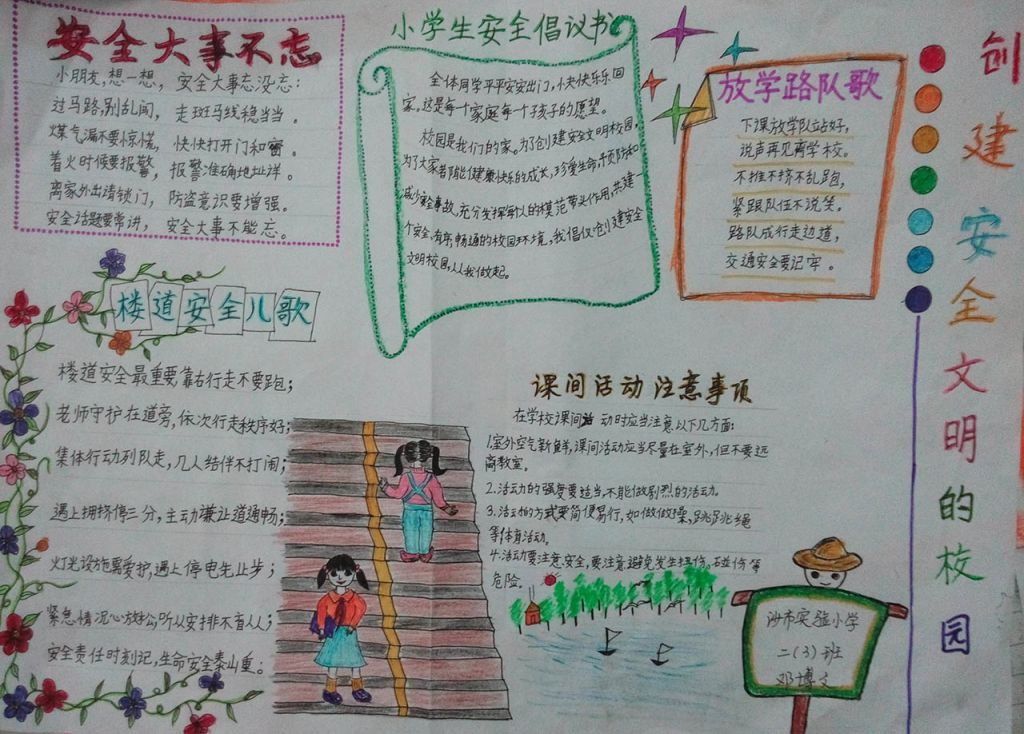 安全大事不忘
小朋友,想一想, 安全大事忘没忘:
过马路,别乱闯, 走斑马线稳当当。
煤气漏不要惊慌, 快快打开门和窗。
着火时候要报警, 报警准确地址详。
离家外出请锁门, 防盗意识要增强。
安全话题要常讲, 安全大事不能忘。
小学生安全倡议书
全体同学平平安安出门,快快乐乐回
家,这是每个家庭每个子孩子的愿望。
校园是我们的家。为了创建安全文明校园,
为了大家都能健康快乐的成长,珍爱生命,
减少安全事故,充分发挥每队的模范带头作用,共建一
个安全、有序、畅通的校园环境,我倡仪:创建安全
文明校园,从我做起。
放学路队歌
下课放学队站好,
说声再见离学校。
不推不挤不乱跑,
紧跟队伍不说笑。
路队成行走边道,
交通安全要记牢。
创建安全文明的校园
楼道安全儿歌
楼道安全最重要,靠右行走不要跑;
老师守护在道旁,依次行走秩序好;
集体行动列队走,几人结伴不打闹;
遇上拥挤停三分,主动谦让道通畅;
灯光设施需爱护,遇上停电先止步;
紧急情况心放松,听从安排不盲从;
安全责任时刻记,生命安全泰山重。
课间活动注意事项
在学校课间活动时应当注意以下几方面:
1.室外空气新鲜,课间活动应当尽量在室外,但不要远
离教室。
2.活动的强度要适当,不能做剧烈的活动。
3.活动的方式要简便易行,如做做操,跳跳绳
等体育活动。
4.活动要注意安全,要注意避免发生扭伤、碰伤等
危险。
沙市实验小学
二(3)班
邓博文